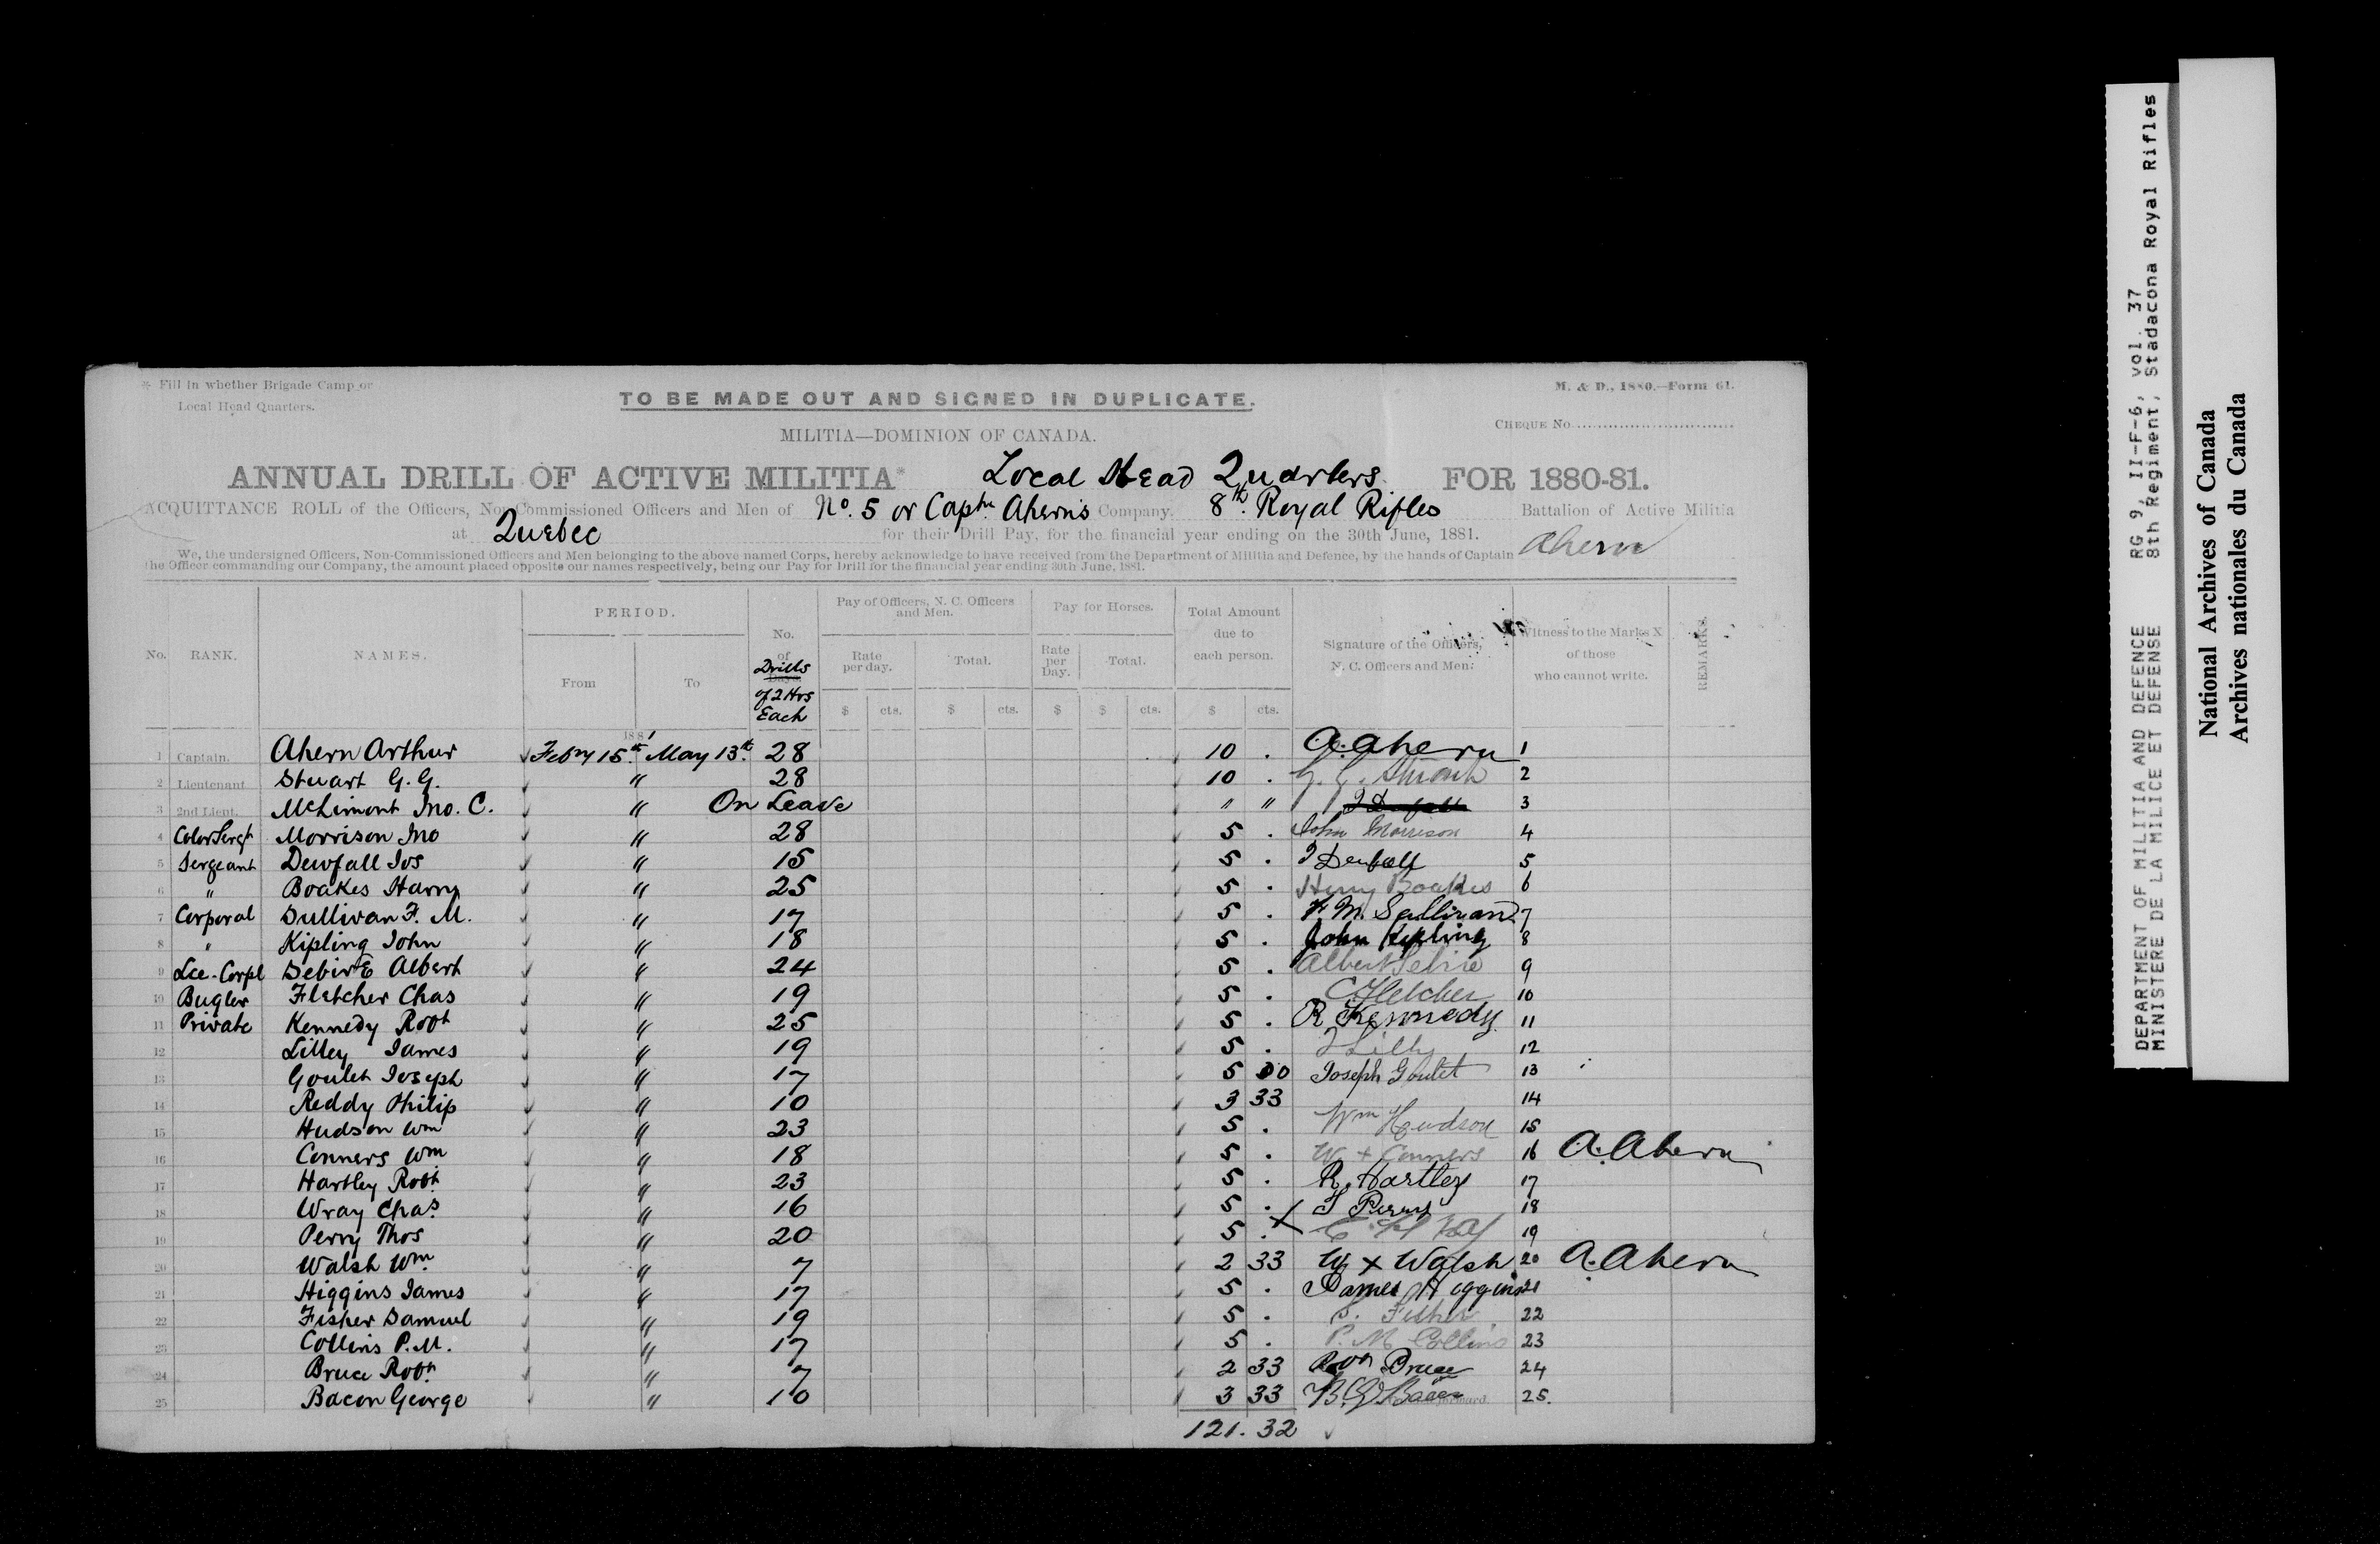 * Fill in whether Brigade Camp or
Local Head Quarters.
TO BE MADE OUT AND SIGNED IN DUPLICATE.
M. & D., 1880.—Form 61.
CHEQUE No
MILITIA—DOMINION OF CANADA.
ANNUAL DRILL OF ACTIVE MILITIA* Local Head Quarters FOR 1880-81.
ACQUITTANCE ROLL of the Officers, Non-Commissioned Officers and Men of No. 5 or Captn Ahern's Company. 8th Royal Rifles Battalion of Active Militia
at Quebec for their Drill Pay, for the financial year ending on the 30th June, 1881.
We, the undersigned Officers, Non-Commissioned Officers and Men belonging to the above named Corps, hereby acknowledge to have received from the Department of Militia and Defence, by the hands of Captain Ahern
the Officer commanding our Company, the amount placed opposite our names respectively, being our Pay for Drill for the financial year ending 30th June, 1881.
No. RANK. NAMES. PERIOD. From To No. of Days Drills of 2 Hrs Each Pay of Officers, N. C. Officers and Men. Rate per day. Total. Pay for Horses. Rate per Day. Total. Total Amount due to each person. Signature of the Officers, N. C. Officers and Men. Witness to the Marks X of those who cannot write. REMARKS.
$ cts. $ cts. $ $ cts. $ cts.
1881
1 Captain. Ahern Arthur Feby 15th May 13th 28 10 . A. Ahern 1
2 Lieutenant Stuart G. G. " 28 10 . G. G. Stuart 2
3 2nd Lieut. McLimont Jno. C. " On Leave " " 3
4 Color Sergt Morrison Jno " 28 5 . John Morrison 4
5 Sergeant Dewfall Jos " 15 5 . J Dewfall 5
6 " Boakes Harry " 25 5 . Henry Boakes 6
7 Corporal Sullivan F. M. " 17 5 . F. M. Sullivan 7
8 " Kipling John " 18 5 . John Kipling 8
9 Lce-Corpl Sebire Albert " 24 5 . Albert Sebire 9
10 Bugler Fletcher Chas " 19 5 . C Fletcher 10
11 Private Kennedy Robt " 25 5 . R Kennedy 11
12 Lilley James " 19 5 . J Lilly 12
13 Goulet Joseph " 17 5 00 Joseph Goulet 13
14 Reddy Philip " 10 3 33 14
15 Hudson Wm " 23 5 . Wm Hudson 15
16 Conners Wm " 18 5 . W + Conners 16 A. Ahern
17 Hartley Robt " 23 5 . R. Hartley 17
18 Wray Chas " 16 5 . T Perry 18
19 Perry Thos " 20 5 . 19
20 Walsh Wm " 7 2 33 W x Walsh 20 A. Ahern
21 Higgins James " 17 5 . James Higgins 21
22 Fisher Samuel " 19 5 . S. Fisher 22
23 Collins P. M. " 17 5 . P. M. Collins 23
24 Bruce Robt " 7 2 33 Robt Bruce 24
25 Bacon George " 10 3 33 25.
121.32
DEPARTMENT OF MILITIA AND DEFENCE RG 9, II-F-6, vol. 37
MINISTERE DE LA MILICE ET DEFENSE 8th Regiment, Stadacona Royal Rifles
National Archives of Canada
Archives nationales du Canada